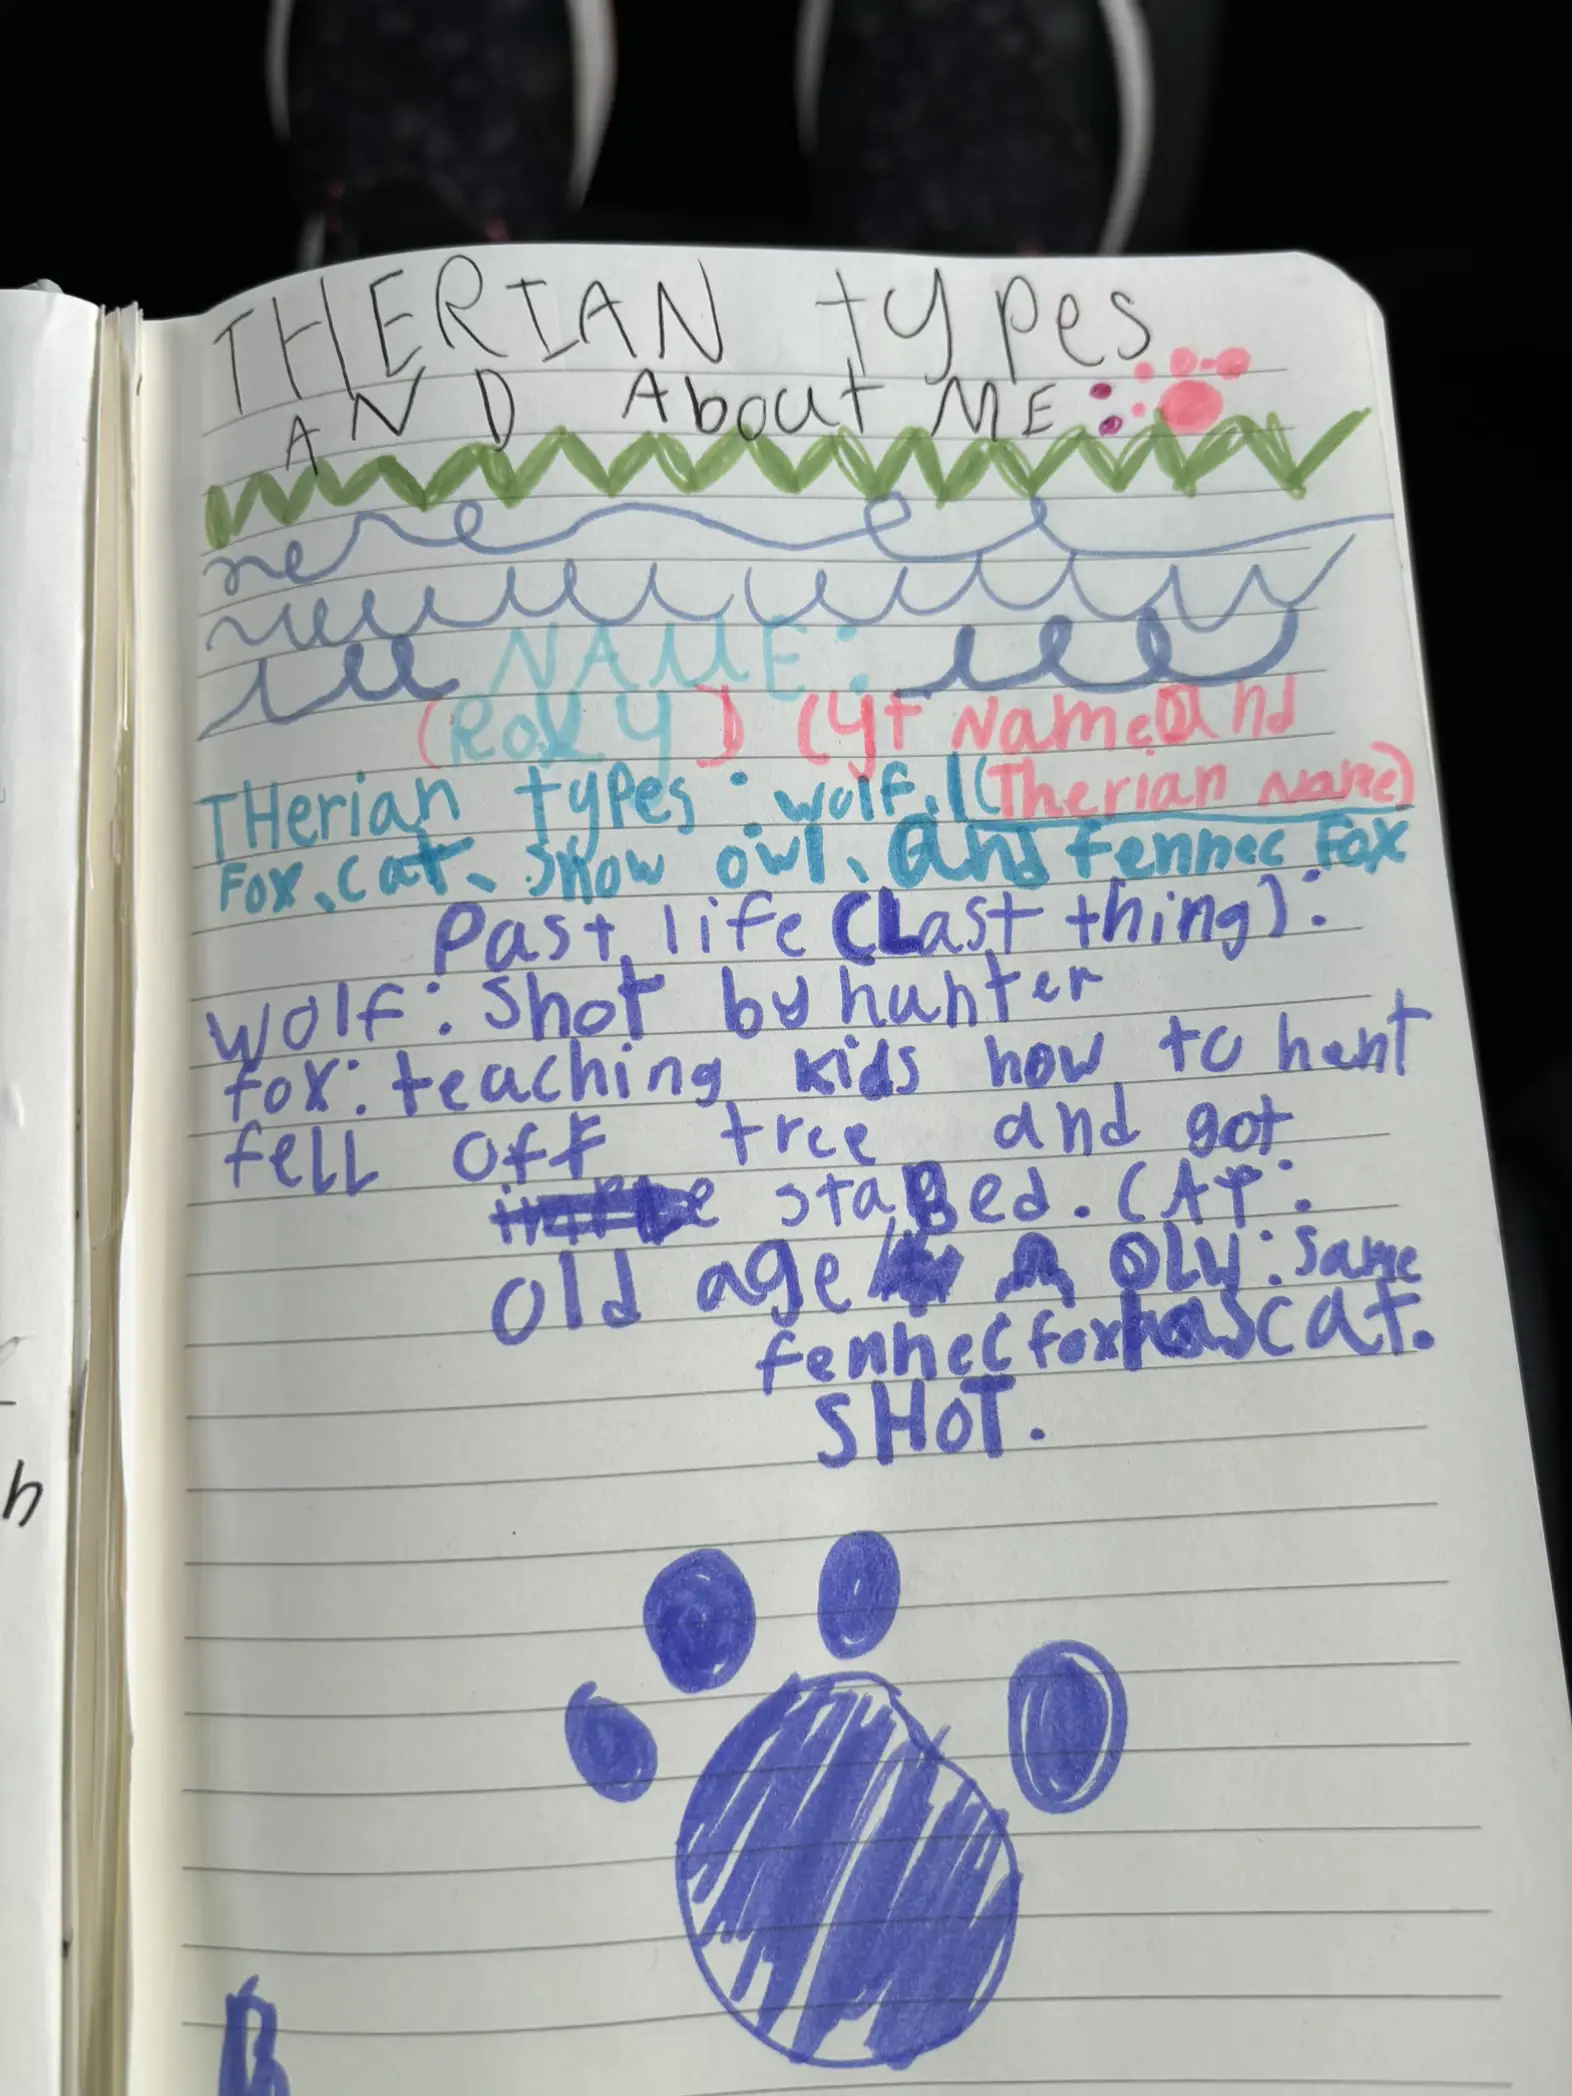 THERIAN types
AND About ME:
NAME:
(Roxy) (yt Name and
THerian types: wolf, (Therian Name)
Fox, cat, snow owl, and fennec Fox
Past life (Last thing):
wolf: Shot by hunter
fox: teaching kids how to hunt
fell off tree and got
staBed. CAT:
old age OLW: same
fennec fox as cat.
SHOT.
h